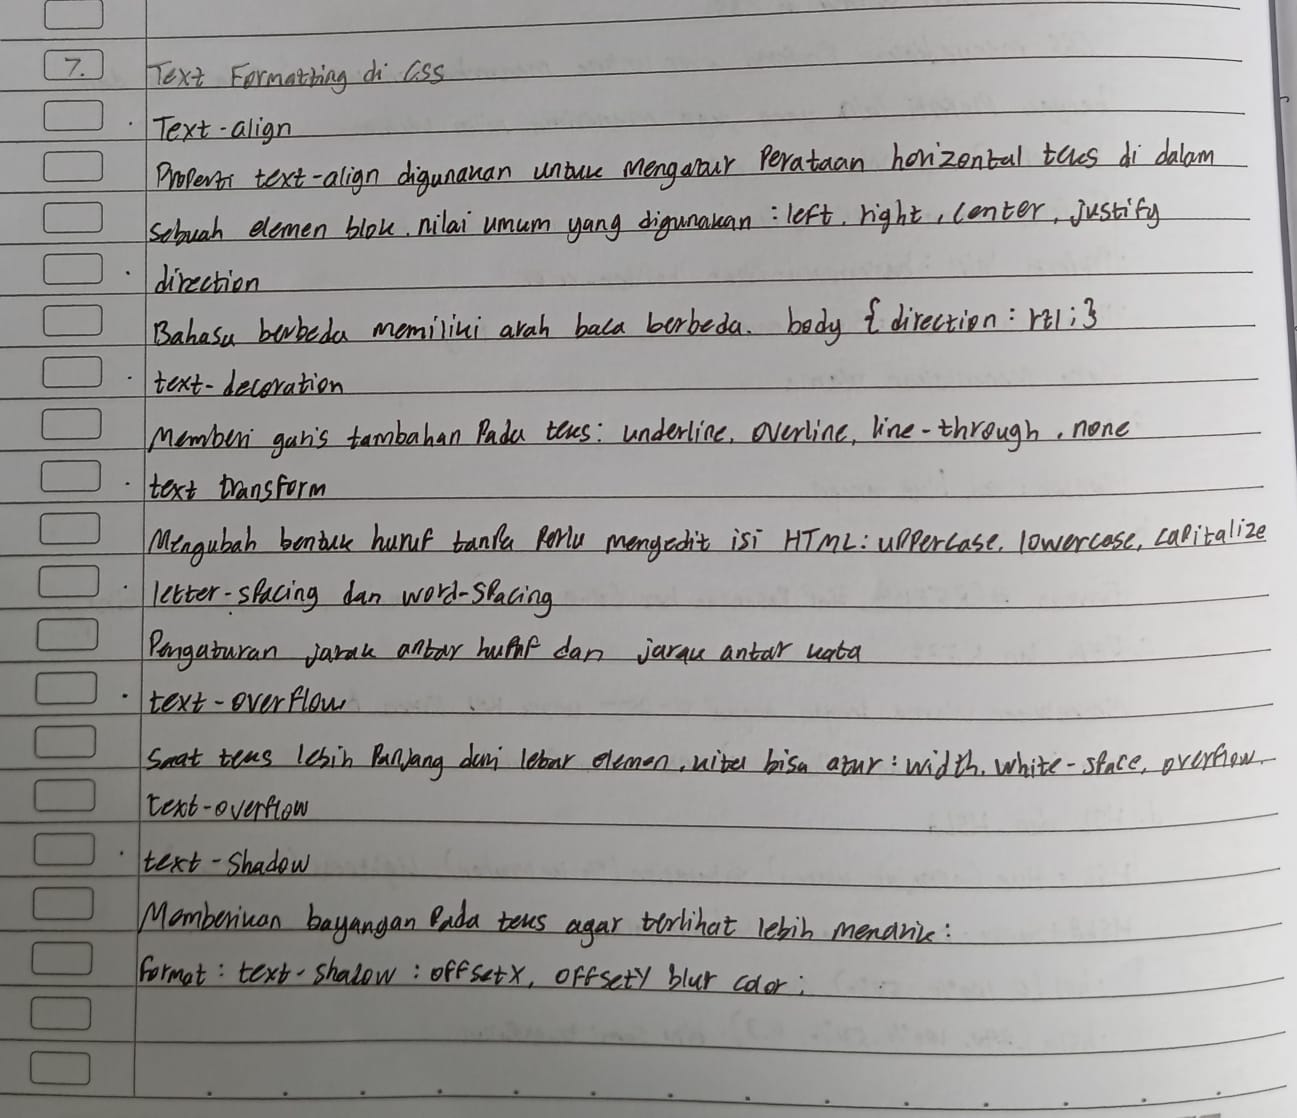 7. Text Formatting di CSS
. Text-align
Properti text-align digunakan untuk Mengatur Perataan horizental teks di dalam
sebuah elemen blok. nilai umum yang digunakan : left, right, center, justify
. direction
Bahasa berbeda memiliki arah baca berbeda. body { direction : rtl ; }
. text-decoration
Memberi garis tambahan Pada teks: underline, overline, line-through, none
. text transform
Mengubah bentuk huruf tanpa Perlu mengedit isi HTML: uppercase, lowercase, capitalize
. letter-spacing dan word-spacing
Pengaturan jarak antar huruf dan jarak antar kata
. text-overflow
Saat teks lebih Panjang dari lebar elemen, kita bisa atur : width, white-space, overflow
text-overflow
. text-shadow
Memberikan bayangan Pada teks agar terlihat lebih menarik :
format : text-shadow : offsetX, offsetY blur color ;